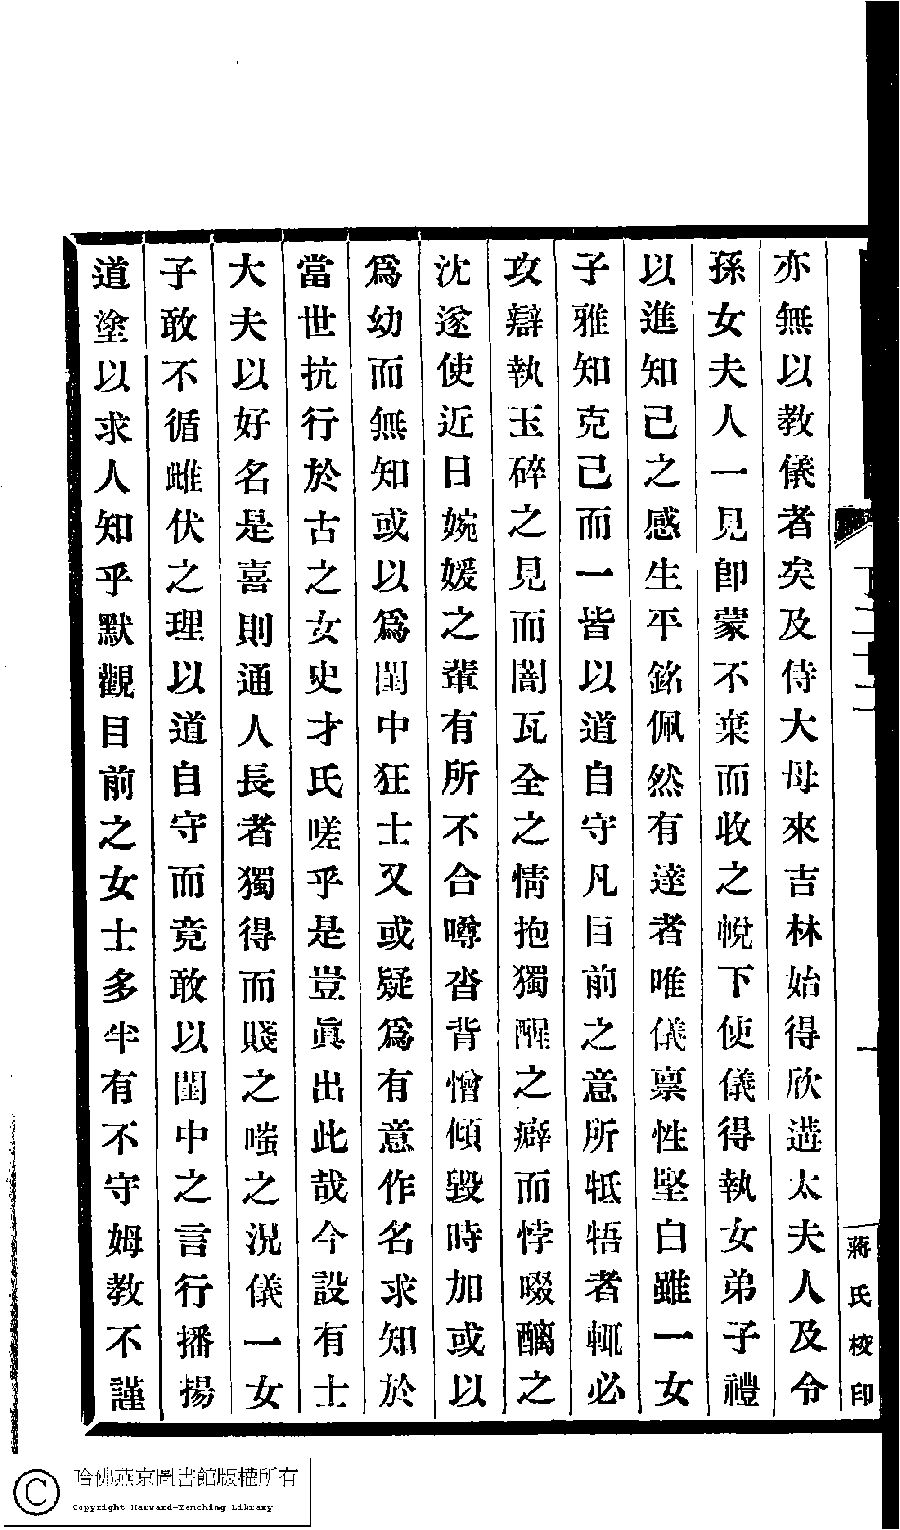 亦無以教儀者矣及侍大母來吉林始得欣遘太夫人及令
孫女夫人一見即蒙不棄而收之帨下使儀得執女弟子禮
以進知己之感生平銘佩然有達者唯儀禀性堅白雖一女
子雅知克己而一皆以道自守凡目前之意所牴牾者輒必
攻辯執玉碎之見而闇瓦全之情抱獨醒之癖而悖啜醨之
沈遂使近日婉媛之輩有所不合噂沓背憎傾毀時加或以
爲幼而無知或以爲閨中狂士又或疑爲有意作名求知於
當世抗行於古之女史才氏嗟乎是豈眞出此哉今設有士
大夫以好名是喜則通人長者獨得而賤之嗤之況儀一女
子敢不循雌伏之理以道自守而竟敢以閨中之言行播揚
道塗以求人知乎默觀目前之女士多半有不守姆教不謹
蔣氏校印
哈佛燕京圖書館版權所有
Copyright Harvard-Yenching Library